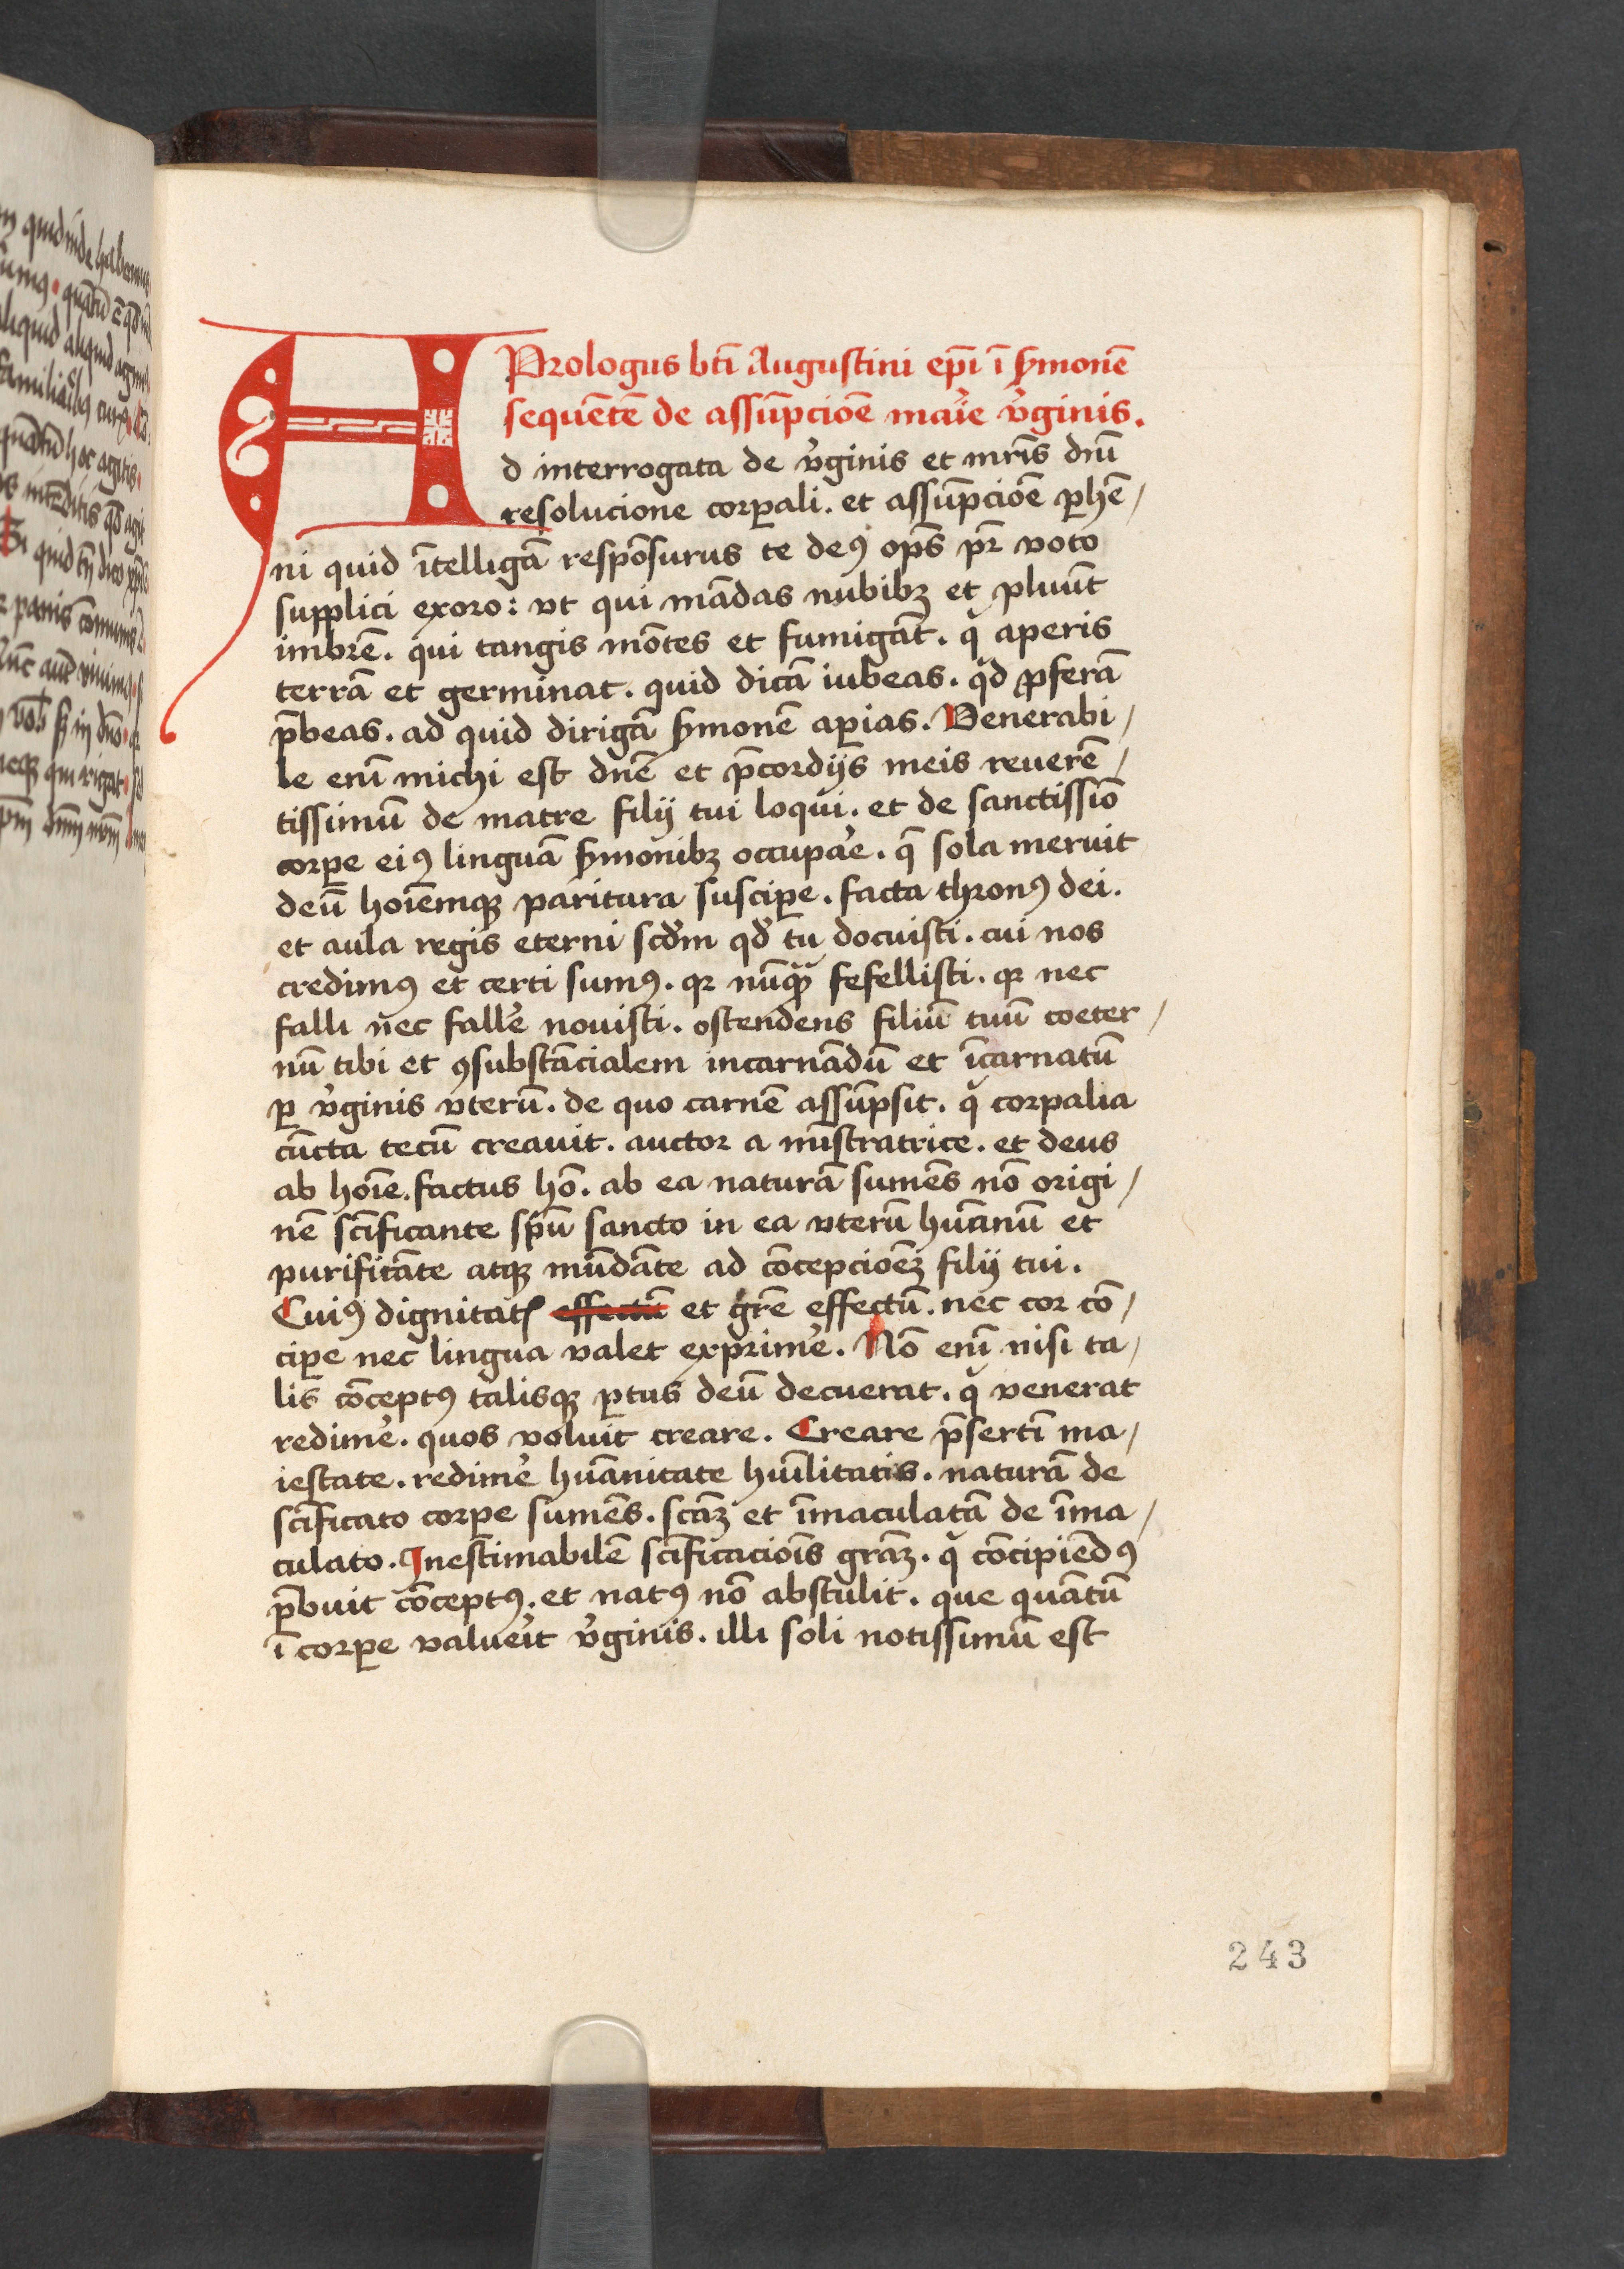 Prologus bti᷃ Augustini ep̄i ī s̄monē
sequētē de assūpcioē maͥe v̓ginis.
Ad interrogata de v̓ginis et mr̄is dn̄i
resolucione corꝑali. et assūpcioē ꝑhē/
ni quid ītelligā respōsurus te deꝰ op̄s pr̄ voto
supplici exoro: vt qui mādas nubibꝫ et pluūt
imbrē. qui tangis mōtes et fumigāt. qͥ aperis
terrā et germinat. quid dicā iubeas. qͥd ꝓferā
p̄beas. ad quid dirigā s̄monē aꝑias. Venerabi/
le enī michi est dn̄e et p̄cordijs meis reuerē/
tissimū de matre filij tui loqui. et de sanctissīo
corꝑe eiꝰ linguā s̄monibꝫ occupar̓e. q̄ sola meruit
deū hoīemqꝫ paritura susciꝑe. facta thronꝰ dei.
et aula regis eterni scd̓m qd̓ tu docuisti. cui nos
credimꝰ et certi sumꝰ. qꝛ nūqᷓꝫ fefellisti. qꝛ nec
falli nec fall̓e nouisti. ostendens filiū tuū coeter/
nū tibi et ꝯsubstācialem incarnādū et īcarnatū
ꝑ v̓ginis vterū. de quo carnē assūpsit. qͥ corꝑalia
cūcta tecū creauit. auctor a mīstratrice. et deus
ab hoīe. factus hō. ab ea naturā sumēs nō origi/
nē sc̄ificante sp̄u sancto in ea vterū hūanū et
purificāte atqꝫ mūdāte ad cōcepcioēꝫ filij tui.
Cuiꝰ dignitatꝭ effectū et gr̄e effectū. nec cor cō/
ciꝑe nec lingua valet exprim̓e. Nō enī nisi ta/
lis cōceptꝰ talisqꝫ ꝑtus deū decuerat. qͥ venerat
redim̓e. quos voluit creare. Creare p̄sertī ma/
iestate. redim̓e hūanitate hūilitatis. naturā de
sc̄ificato corꝑe sumēs. sc̄aꝫ et īmaculatā de īma/
culato. Inestimabilē sc̄ificacioīs gr̄aꝫ. qͣ cōcipiēdꝰ
p̄buit cōceptꝰ. et natꝰ nō abstulit. que quātū
ī corꝑe valuer̓it v̓ginis. illi soli notissimū est
243